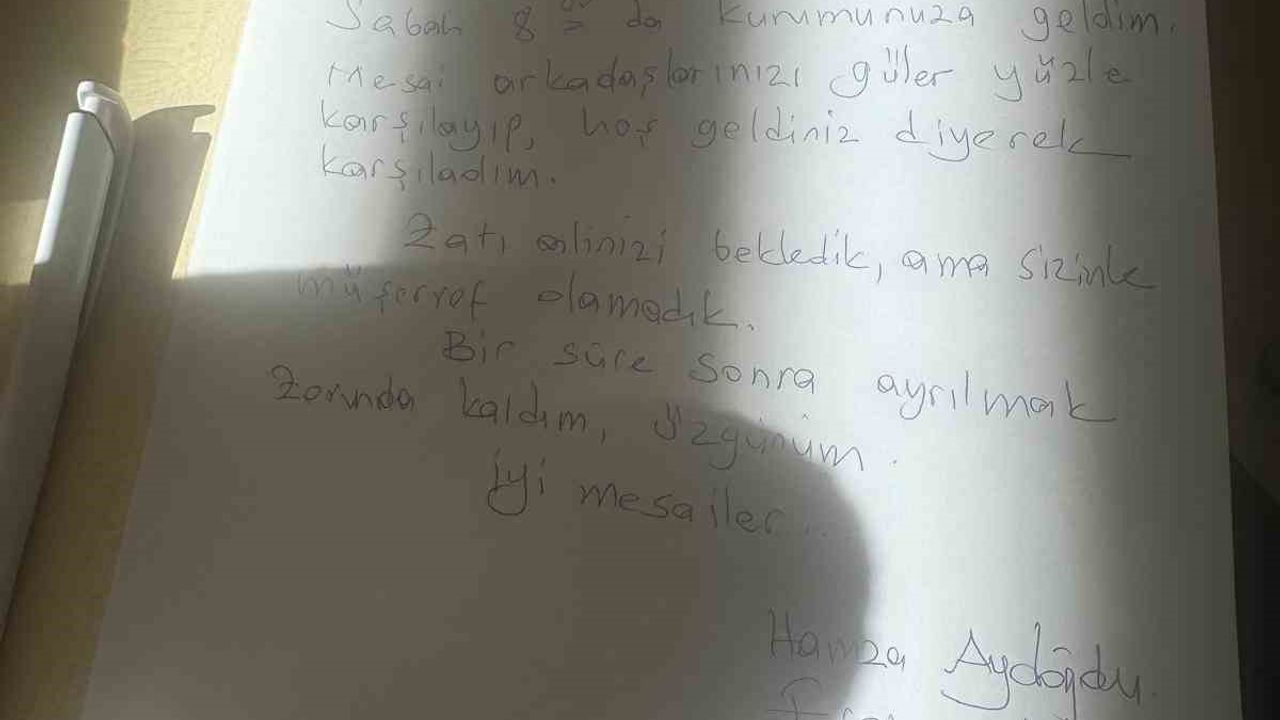 Sabah 8⁰⁰ da kurumunuza geldim.
Mesai arkadaşlarınızı güler yüzle
karşılayıp, hoş geldiniz diyerek
karşıladım.
Zatı alinizi bekledik, ama sizinle
müşerref olamadık.
Bir süre sonra ayrılmak
zorunda kaldım, üzgünüm.
iyi mesailer...
Hamza Aydoğdu